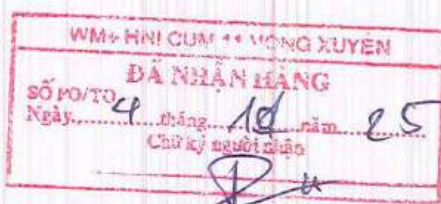 WM+ HNI CUM 11 VONG XUYÊN
ĐÃ NHẬN HÀNG
SỐ PO/TO
Ngày 4 tháng 10 năm 25
Chữ ký người nhận